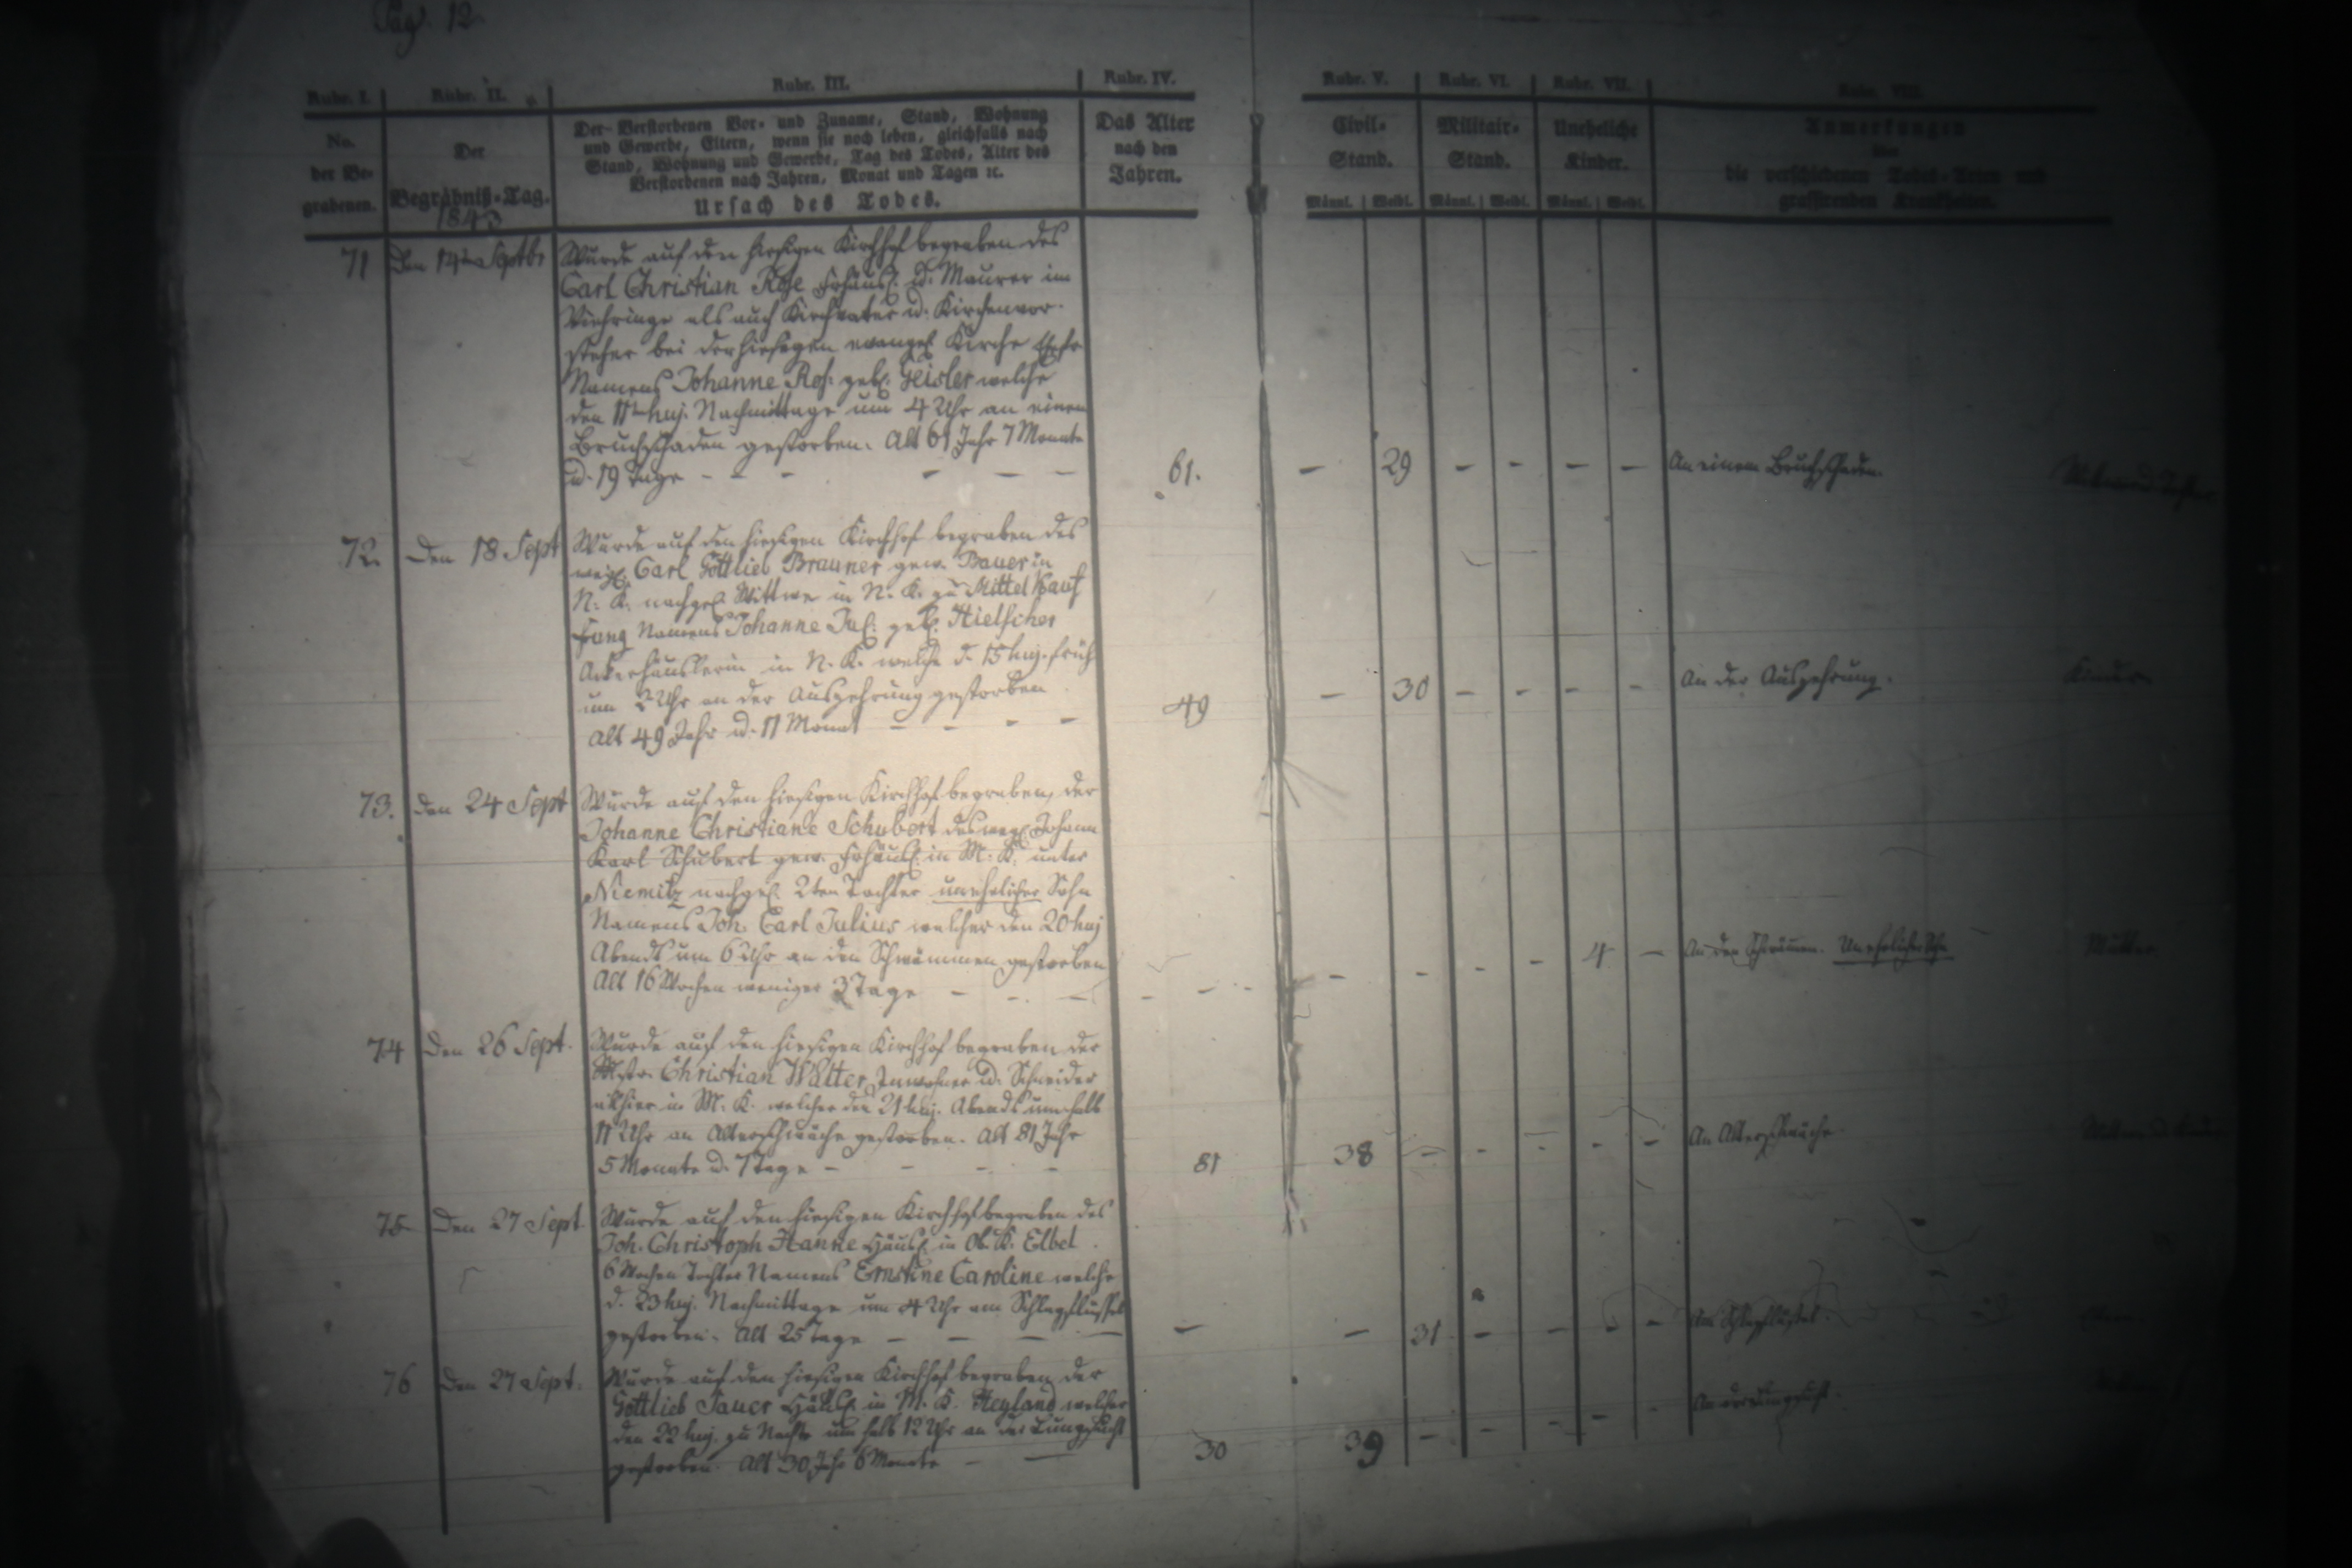 Pag. 12.
Rubr. I.
Rubr. II.
Rubr. III.
Rubr. IV.
Rubr. V.
Rubr. VI.
Rubr. VII.
Rubr. VIII.
No.
der Be-
grabenen.
Der
Begräbniß-Tag.
1843
Der Verstorbenen Vor- und Zuname, Stand, Wohnung
und Gewerbe, Eltern, wenn sie noch leben, gleichfalls nach
Stand, Wohnung und Gewerbe, Tag des Todes, Alter des
Verstorbenen nach Jahren, Monat und Tagen ꝛc.
Ursach des Todes.
Das Alter
nach den
Jahren.
Civil-
Stand.
Männl. Weibl.
Militair-
Stand.
Männl. Weibl.
Uneheliche
Kinder.
Männl. Weibl.
Anmerkungen
über
die verschiedenen Todes-Arten und
grassirenden Krankheiten.
71 Den 14ten Septbr
Wurde auf den hiesigen Kirchhof begraben des
Carl Christian Maurer im
Viehringe als auch Kirchvater u. Kirchenvor-
steher bei der hiesigen evangel. Kirche
Namens Johanne Ros. geb. Geisler welche
den 11ten huj. Nachmittags um 4 Uhr an einem
Bruchschaden gestorben. Alt 61 Jahr 7 Monate
u. 19 Tage - - - - - -
61. - 29 - - - - An einem Bruchschaden.
72. Den 18 Sept
Wurde auf den hiesigen Kirchhof begraben des
weil. Carl Gottlieb Brauner gew. Bauer in
N. K. nachgel. Wittwe in N. K. zu Mittel Kauf
fung Namens Johanne Jul. geb. Hielscher
Ackerhäuslerin in N. K. welche d. 15 huj. früh
um 2 Uhr an der Auszehrung gestorben
Alt 49 Jahr u. 11 Monat - - - -
49 - 30 - - - - An der Auszehrung. Kinder
73. Den 24 Sept
Wurde auf den hiesigen Kirchhof begraben, der
Johanne Christiane Schubert des weil. Johann
Karl Schubert gew. Frhäusl. in M. K. unter
Niemitz nachgel. 2ten Tochter unehelicher Sohn
Namens Joh. Carl Julius welcher den 20 huj
Abends um 6 Uhr an den Schwämmen gestorben
Alt 16 Wochen weniger 3 Tage - - -
- - - - - - - 4 - An den Schwämmen. Unehelicher Sohn Mutter
74 Den 26 Sept.
Wurde auf den hiesigen Kirchhof begraben der
Mstr. Christian Walter Inwohner u. Schneider
allhier in M. K. welcher den 21 huj. Abends um halb
11 Uhr an Altersschwäche gestorben. Alt 81 Jahr
5 Monate u. 7 Tage - - - -
81 38 - - - - - An Altersschwäche.
75 Den 27 Sept.
Wurde auf den hiesigen Kirchhof begraben des
Joh. Christoph Hanne Häusl. in Ob. K. Elbel
6 Wochen Tochter Namens Ernstine Caroline welche
d. 23 huj. Nachmittags um 4 Uhr am Schlagflusse
gestorben. Alt 25 Tage - - - -
- - 31 - - - - Am Schlagflusse.
76 Den 27 Sept.
Wurde auf den hiesigen Kirchhof begraben der
Gottlieb Sauer Häusl. in M. K. Heyland welcher
den 22 huj. zu Nachts um halb 12 Uhr an der Lungensucht
gestorben. Alt 30 Jahr 6 Monate - -
30 39 - - - - - An der Lungensucht.